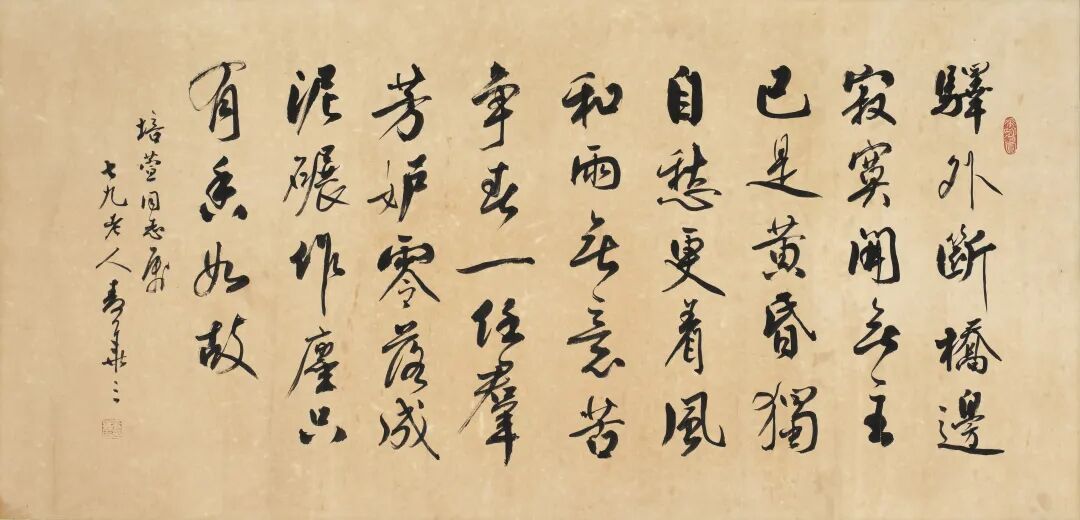 驛外斷橋邊
寂寞開無主
已是黄昏獨
自愁更着風
和雨無意苦
争春一任羣
芳妒零落成
泥碾作塵只
有香如故
培萱同志属
七九老人麦華三